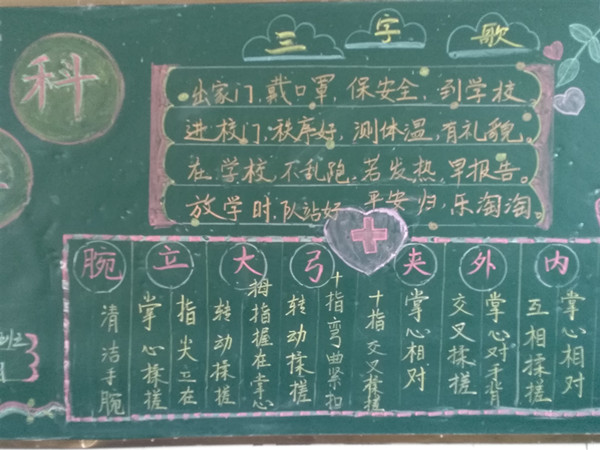 科
三字歌
出家门,戴口罩,保安全,到学校。
进校门,秩序好,测体温,有礼貌。
在学校,不乱跑,若发热,早报告。
放学时,队站好,平安归,乐淘淘。
内
掌心相对
互相揉搓
外
掌心对手背
交叉揉搓
夹
掌心相对
十指交叉揉搓
弓
十指弯曲紧扣
转动揉搓
大
拇指握在掌心
转动揉搓
立
指尖立在
掌心揉搓
腕
清洁手腕